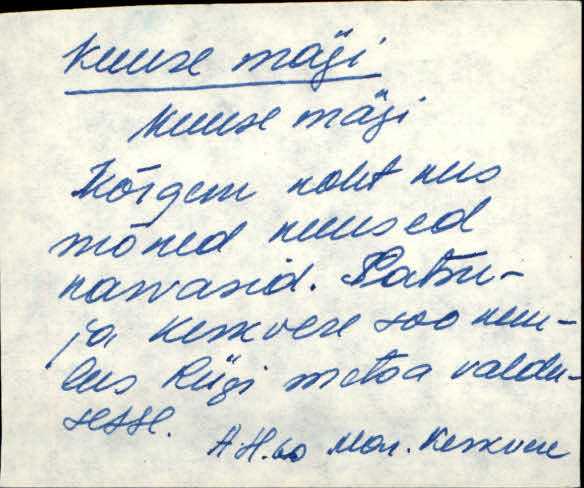 Kuuse mägi
kuuse mägi
Kõrgem koht kus
mõned kuused
kasvasid. Patsu-
ja Keskvere soo kuu-
lus Riigi metsa valdu-
sesse.
A.H. 60 Mar. Keskvere